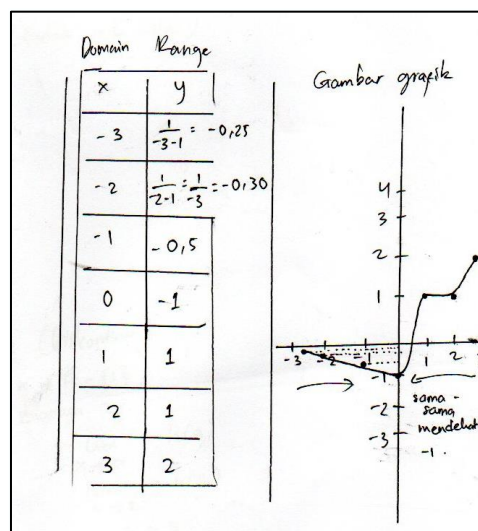 Domain Range
x y
-3 1/-3-1 = -0,25
-2 1/-2-1 = 1/-3 = -0,30
-1 -0,5
0 -1
1 1
2 1
3 2
Gambar grafik
4
3
2
1
-3 -2 -1 1 2
-1
-2
-3
sama -
sama
mendekat
-1.